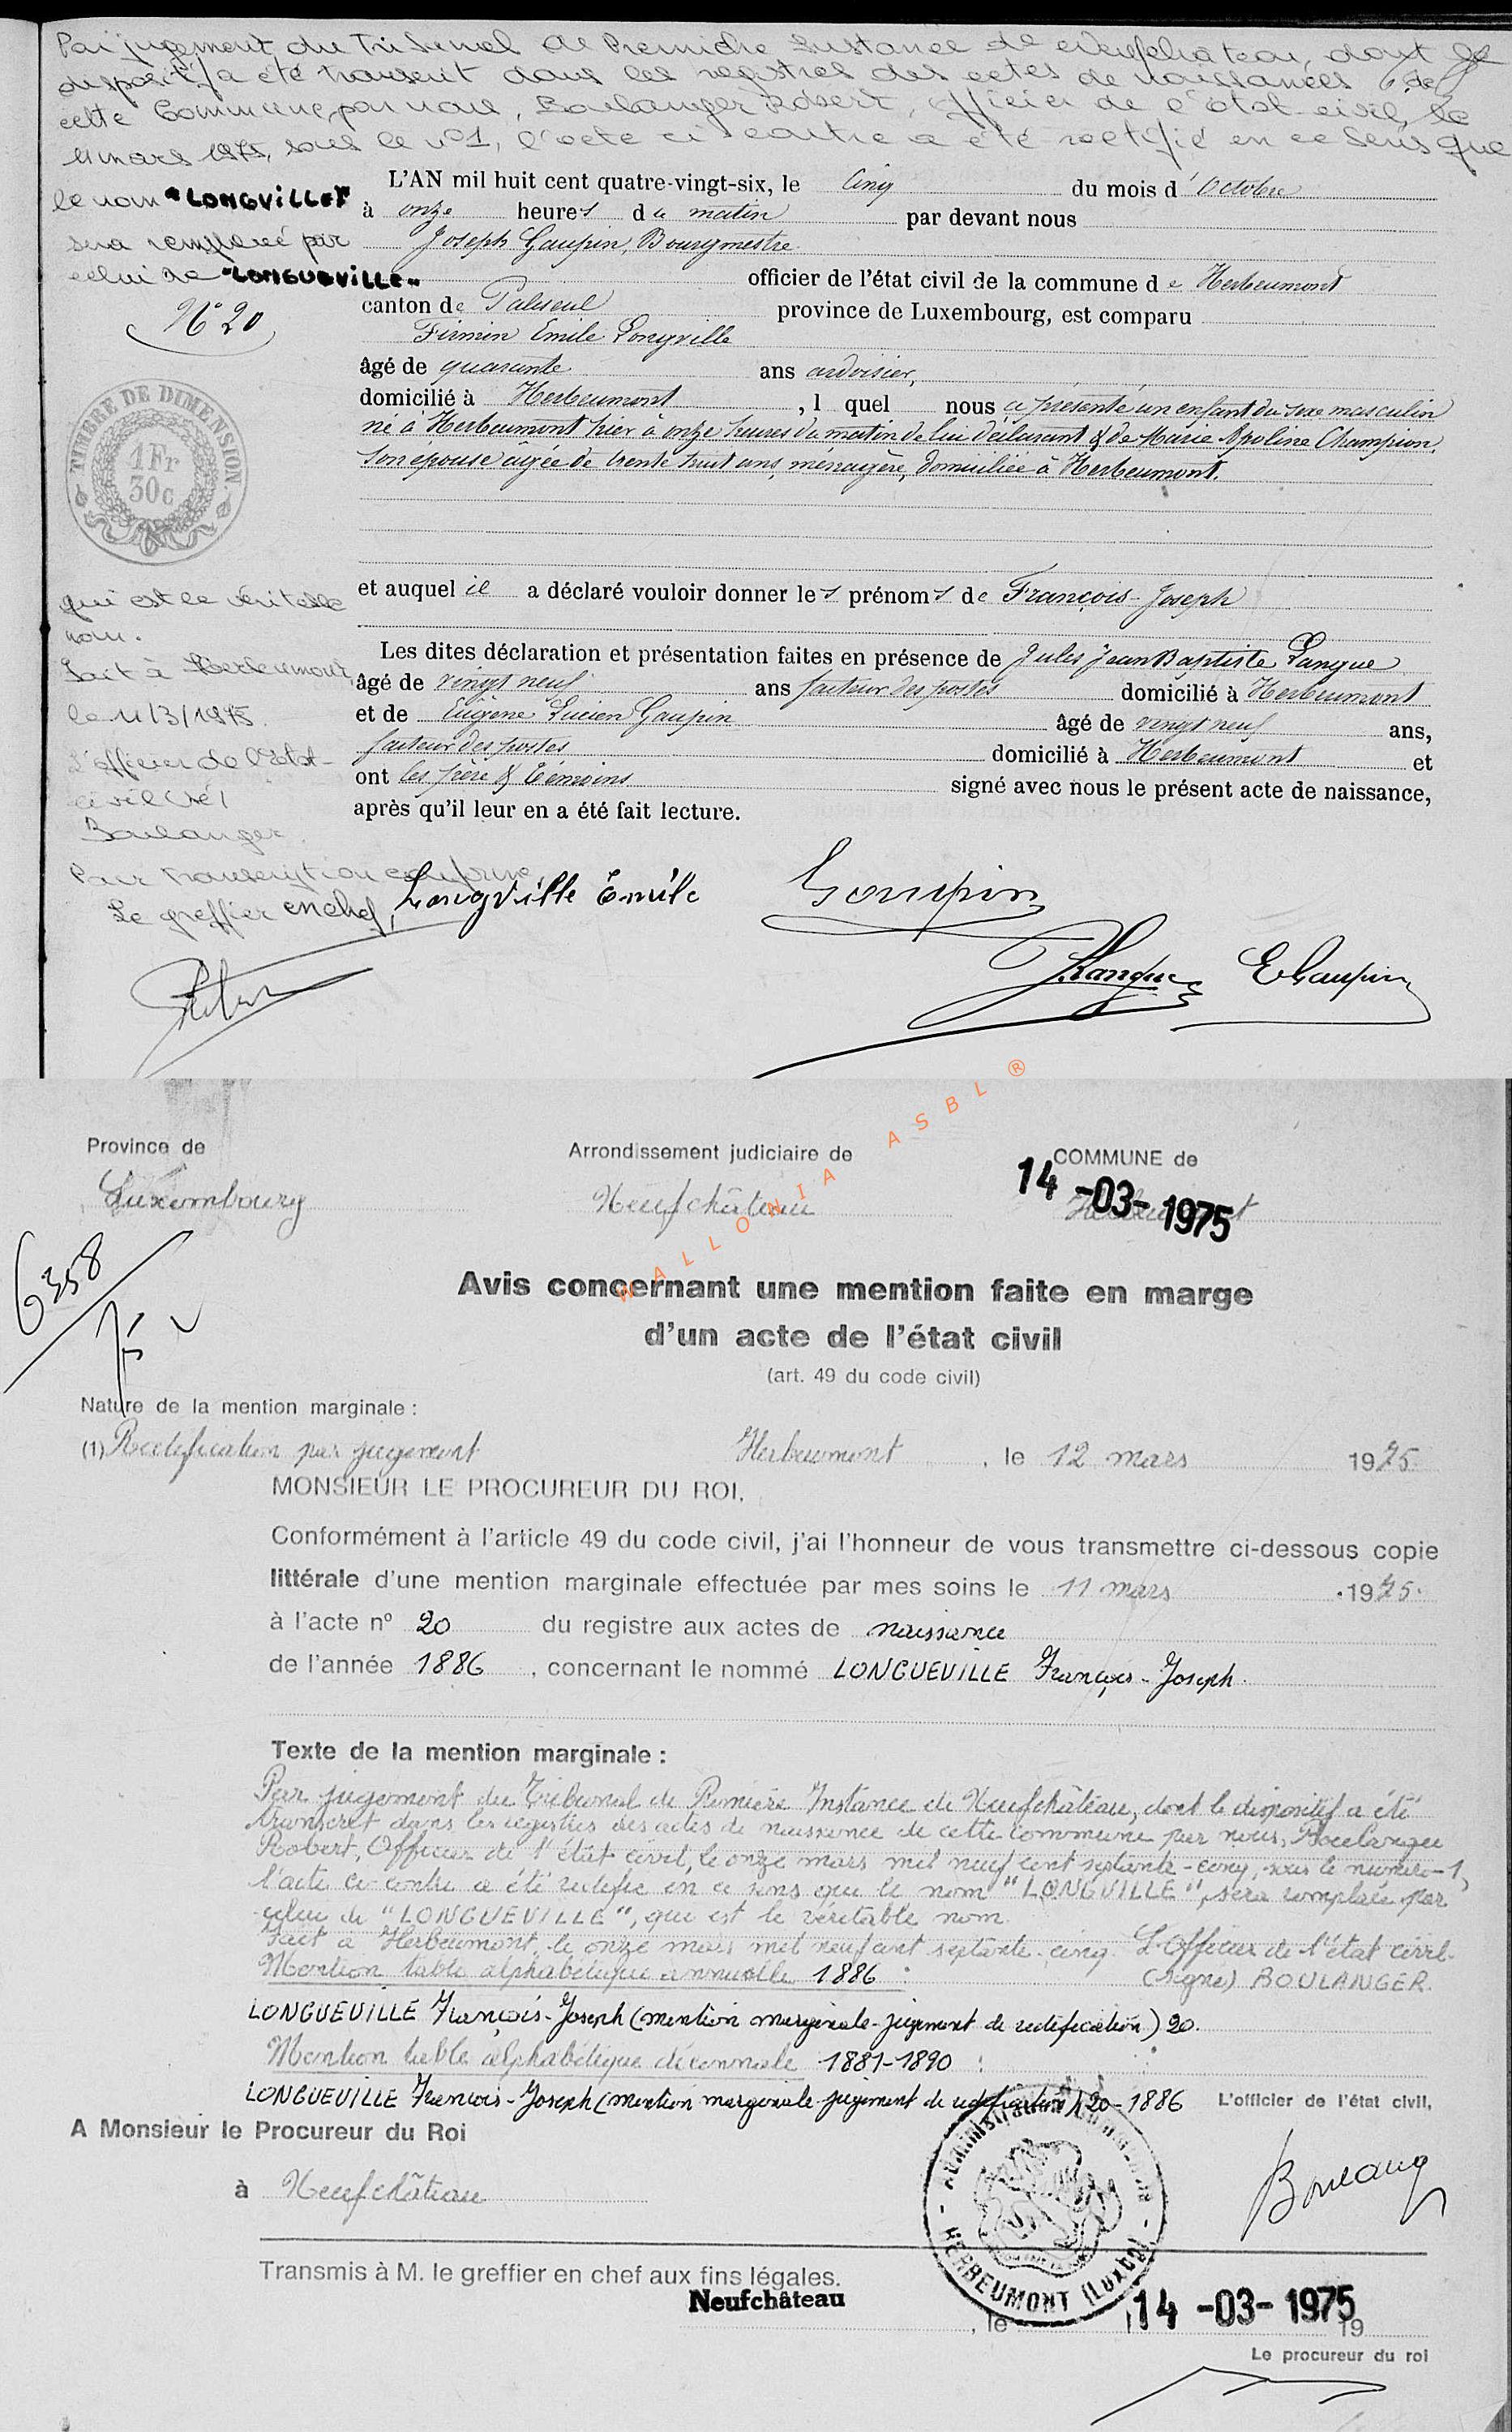 Par jugement du Tribunal de Première Instance de Neufchâteau, dont le
dispositif a été transcrit dans les registres des actes de naissances de
cette Commune, par nous, Boulanger Robert, officier de l'état-civil, le
11 mars 1975, sous le n°1, l'acte ci-contre a été rectifié en ce sens que
le nom "LONGVILLE"
sera remplacé par
celui de "LONGUEVILLE"
N° 20
TIMBRE DE DIMENSION
1 Fr
30c
qui est le véritable
nom.
Fait à Herbeumont,
le 11/3/1975
L'officier de l'Etat-
civil (sé)
Boulanger.
Pour transcription conforme,
Le greffier en chef,
L'AN mil huit cent quatre-vingt-six, le cinq du mois d' Octobre
à onze heures du matin par devant nous
Joseph Gaupin, Bourgmestre
officier de l'état civil de la commune de Herbeumont
canton de Paliseul province de Luxembourg, est comparu
Firmin Emile Longville
âgé de quarante ans ardoisier,
domicilié à Herbeumont, l quel nous a présenté un enfant du sexe masculin
né à Herbeumont hier à onze heures du matin de lui déclarant & de Marie Apoline Champion,
son épouse âgée de trente huit ans, ménagère, domiciliée à Herbeumont.
et auquel il a déclaré vouloir donner les prénoms de François-Joseph
Les dites déclaration et présentation faites en présence de Jules Jean Baptiste Langue
âgé de vingt neuf ans facteur des postes domicilié à Herbeumont
et de Eugène Lucien Gaupin âgé de vingt neuf ans,
facteur des postes domicilié à Herbeumont et
ont les père & témoins signé avec nous le présent acte de naissance,
après qu'il leur en a été fait lecture.
Longville Emile Gaupin
JLangue EGaupin
WALLONIA ASBL ®
Province de Arrondissement judiciaire de COMMUNE de
Luxembourg Neufchâteau Herbeumont
14 -03- 1975
6358
75
Avis concernant une mention faite en marge
d'un acte de l'état civil
(art. 49 du code civil)
Nature de la mention marginale :
(1) Rectification par jugement Herbeumont, le 12 mars 1975
MONSIEUR LE PROCUREUR DU ROI,
Conformément à l'article 49 du code civil, j'ai l'honneur de vous transmettre ci-dessous copie
littérale d'une mention marginale effectuée par mes soins le 11 mars 1975.
à l'acte n° 20 du registre aux actes de naissance
de l'année 1886, concernant le nommé LONGUEVILLE François-Joseph.
Texte de la mention marginale :
Par jugement du Tribunal de Première Instance de Neufchâteau, dont le dispositif a été
transcrit dans les registres des actes de naissance de cette commune par nous, Boulanger
Robert, Officier de l'état civil, le onze mars mil neuf cent septante-cinq, sous le numéro-1,
l'acte ci-contre a été rectifié en ce sens que le nom "LONGVILLE", sera remplacé par
celui de "LONGUEVILLE", qui est le véritable nom.
Fait à Herbeumont, le onze mars mil neuf cent septante-cinq. L'Officier de l'état civil.
Mention table alphabétique annuelle 1886 : (signé) BOULANGER.
LONGUEVILLE François-Joseph (mention marginale-jugement de rectification) 20.
Mention table alphabétique décennale 1881-1890 :
LONGUEVILLE François-Joseph (mention marginale-jugement de rectification) 20-1886 L'officier de l'état civil,
A Monsieur le Procureur du Roi
à Neufchâteau
Boulang
Administration Communale
- HERBEUMONT (Luxbg) -
Transmis à M. le greffier en chef aux fins légales.
Neufchâteau, le 14 -03- 1975 19
Le procureur du roi